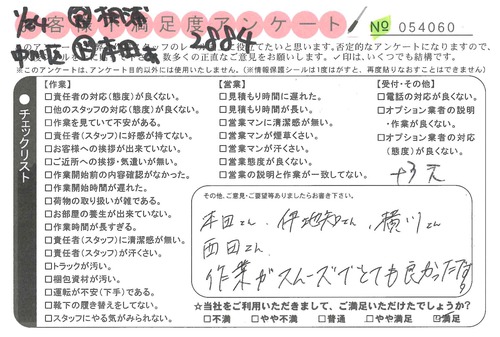 お客様不満足度アンケート
№ 054060
1/24
2004
中川区
※このアンケートは、アンケート目的以外には使用いたしません。(※情報保護シールは1度はがすと、再度貼りなおすことはできません)
チェックリスト
【作業】
□責任者の対応(態度)が良くない。
□他のスタッフの対応(態度)が良くない。
□作業を見ていて不安がある。
□責任者(スタッフ)に好感が持てない。
□お客様への挨拶が出来ていない。
□ご近所への挨拶・気遣いが無い。
□作業開始前の内容確認がなかった。
□作業開始時間が遅れた。
□荷物の取り扱いが雑である。
□お部屋の養生が出来ていない。
□作業時間が長すぎる。
□責任者(スタッフ)に清潔感が無い。
□責任者(スタッフ)が汗臭い。
□トラックが汚い。
□梱包資材が汚い。
□運転が不安(下手)である。
□靴下の履き替えをしてない。
□スタッフにやる気がみられない。
【営業】
□見積もり時間に遅れた。
□見積もり時間が長い。
□営業マンに清潔感が無い。
□営業マンが煙草くさい。
□営業マンが汗くさい。
□営業態度が良くない。
□営業の説明と作業が一致してない。
【受付・その他】
□電話の対応が良くない。
□オプション業者の説明
・作業が良くない。
□オプション業者の対応
(態度)が良くない。
その他、ご意見・ご要望等ありましたらお書き下さい。
本田さん、伊地知さん、横川さん
西田さん
作業がスムーズでとても良かったです
☆当社をご利用いただきまして、ご満足いただけたでしょうか?
□不満 □やや不満 □普通 □やや満足 ☑満足